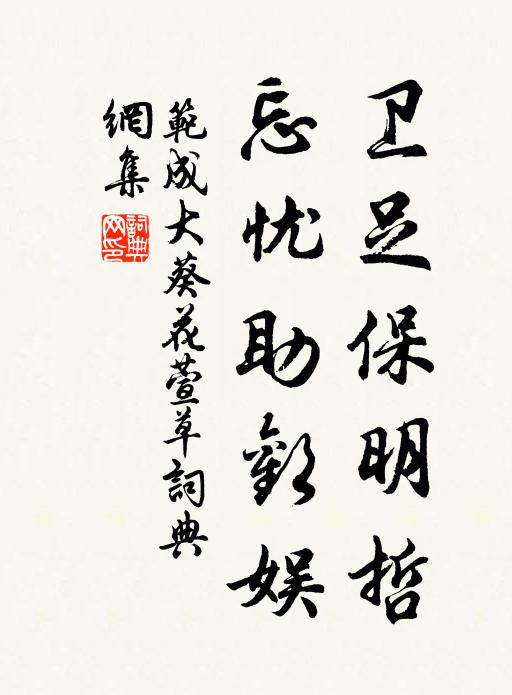 卫足保明哲
忘忧助歡娱
範成大葵花萱草詞典
網集
詞典
网印